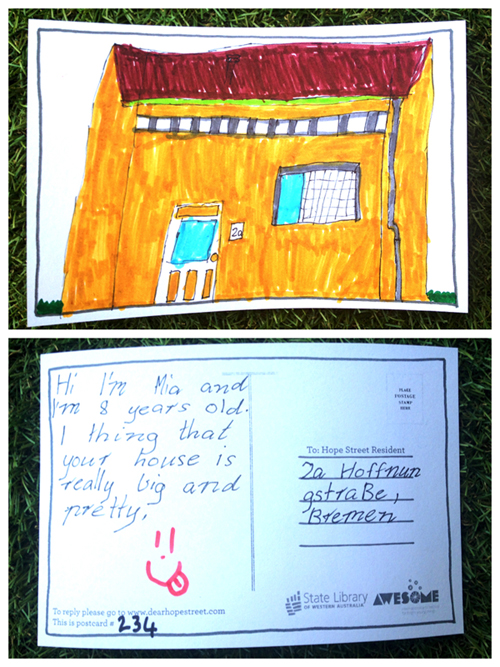 2a
Hi I'm Mia and
I'm 8 years old.
I thing that
your house is
really big and
pretty.
To reply please go to www.dearhopestreet.com
This is postcard # 234
PLACE
POSTAGE
STAMP
HERE
To: Hope Street Resident
2a Hoffnun
gstraße,
Bremen
State Library
OF WESTERN AUSTRALIA
AWESOME